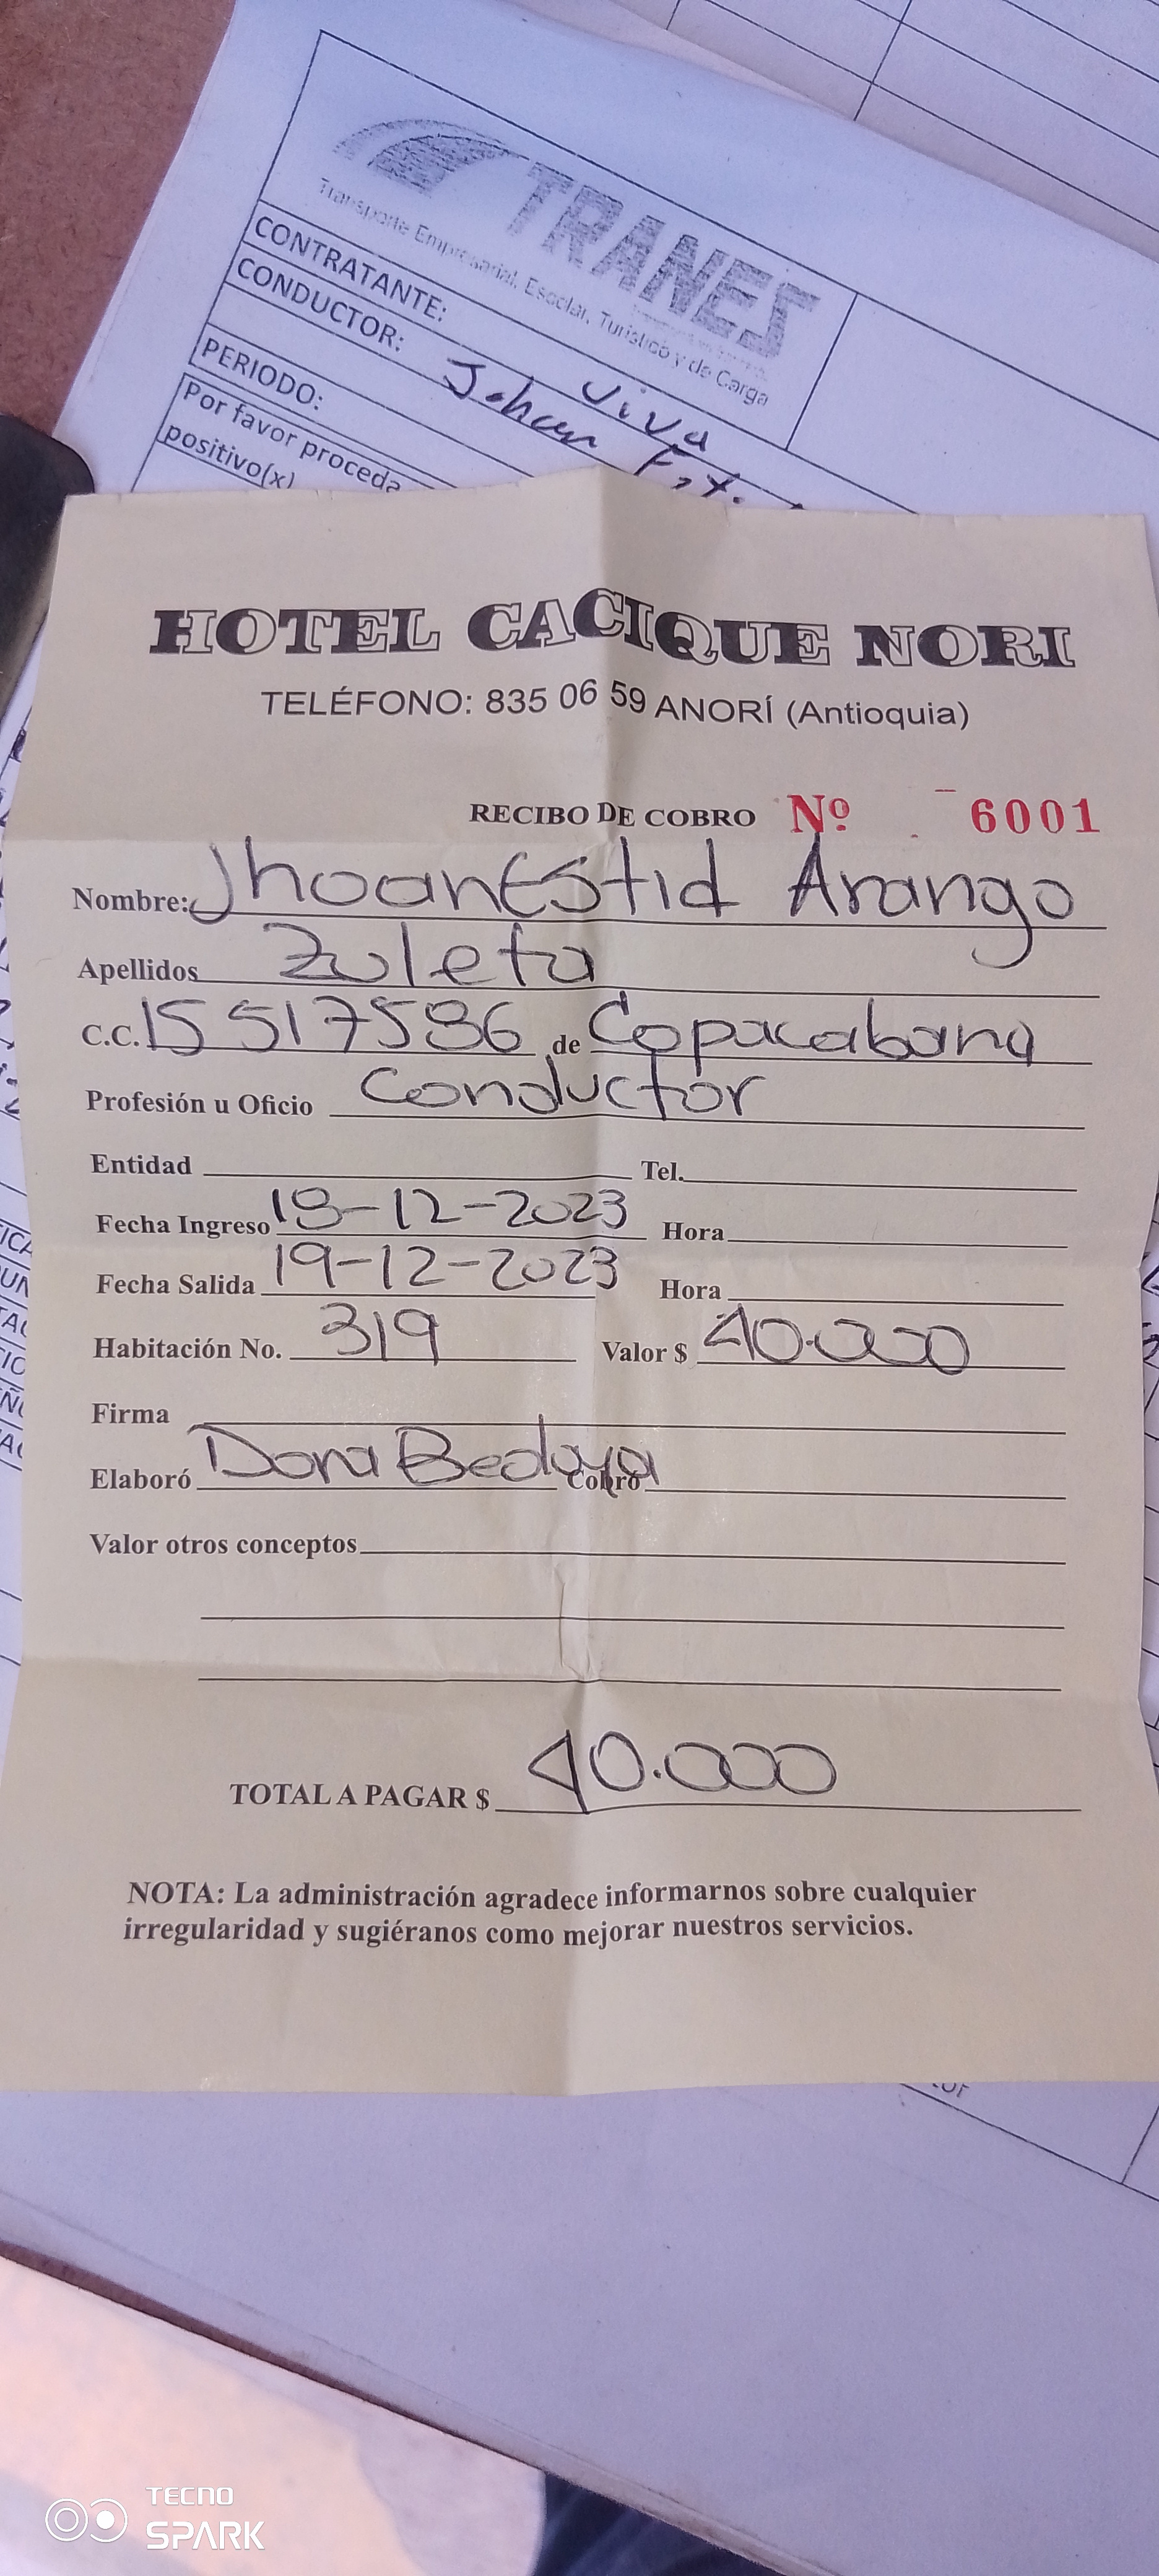 TRANES
Transporte Empresarial, Escolar, Turístico y de Carga
CONTRATANTE: Viva
CONDUCTOR: Johan
PERIODO:
Por favor proceda
positivo(x)
HOTEL CACIQUE NORI
TELÉFONO: 835 06 59 ANORÍ (Antioquia)
RECIBO DE COBRO Nº 6001
Nombre: Jhoan Estid Arango
Apellidos Zuleta
C.C. 15517586 de Copacabana
Profesión u Oficio Conductor
Entidad Tel.
Fecha Ingreso 18-12-2023 Hora
Fecha Salida 19-12-2023 Hora
Habitación No. 319 Valor $ 40.000
Firma
Elaboró Dora Bedoya Cobró
Valor otros conceptos
TOTAL A PAGAR $ 40.000
NOTA: La administración agradece informarnos sobre cualquier
irregularidad y sugiéranos como mejorar nuestros servicios.
TECNO
SPARK